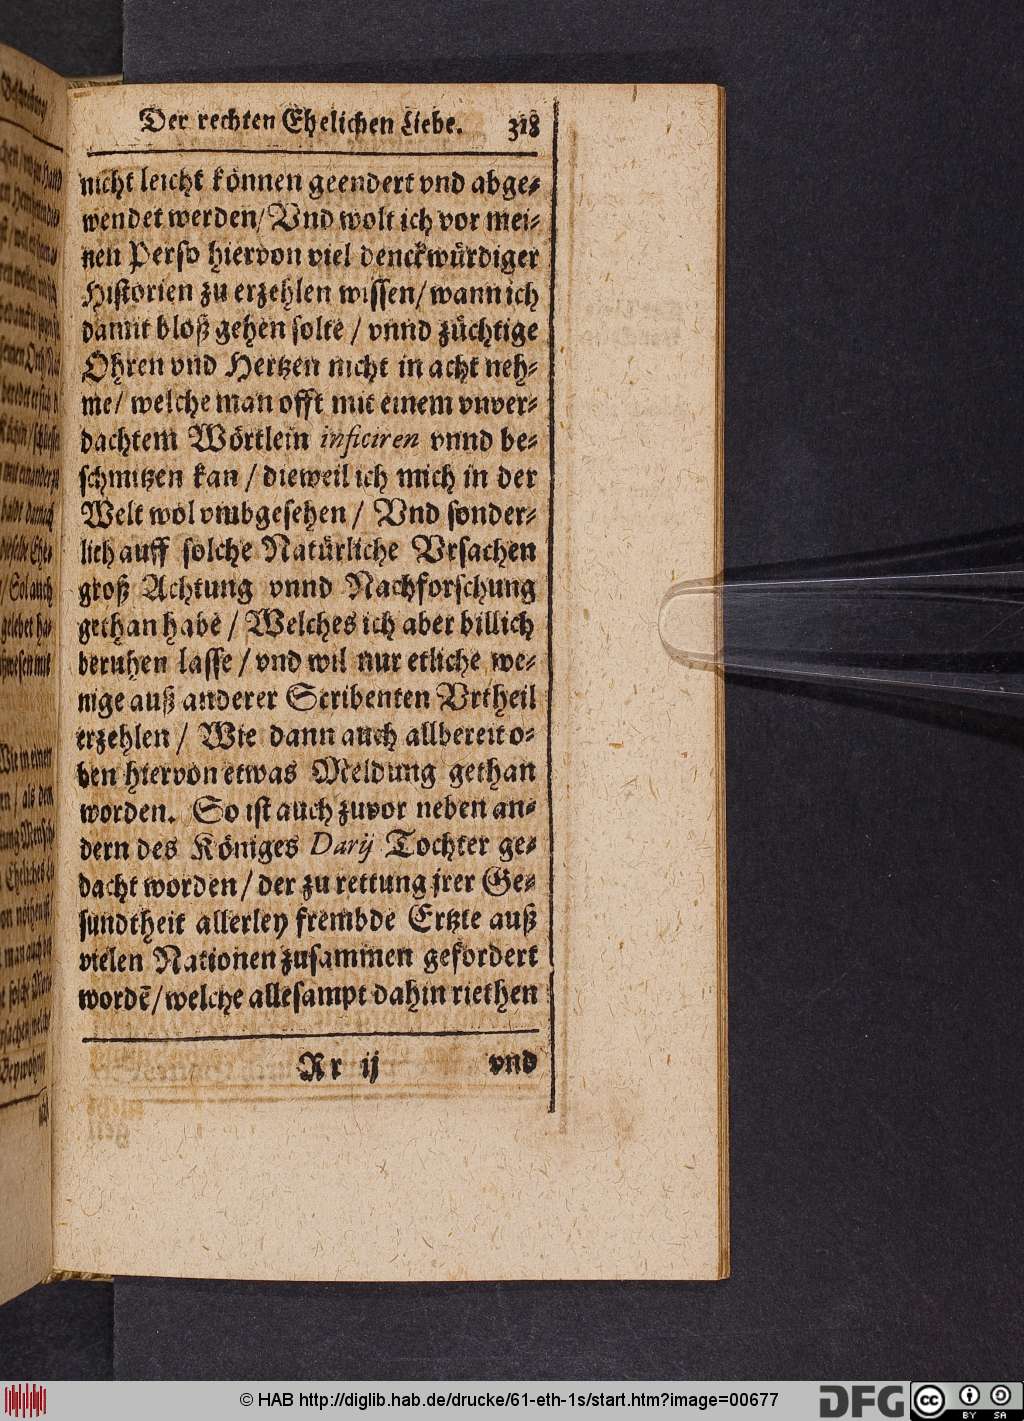 Der rechten Ehelichen Liebe. 318
nicht leicht können geendert vnd abge-
wendet werden/ Vnd wolt ich vor mei-
nen Perso hiervon viel denckwürdiger
Historien zu erzehlen wissen/ wann ich
damit bloß gehen solte / vnnd züchtige
Ohren vnd Hertzen nicht in acht neh-
me/ welche man offt mit einem vnver-
dachtem Wörtlein inficiren vnnd be-
schmitzen kan / dieweil ich mich in der
Welt wol vmbgesehen / Vnd sonder-
lich auff solche Natürliche Vrsachen
groß Achtung vnnd Nachforschung
gethan habe / Welches ich aber billich
beruhen lasse / vnd wil nur etliche we-
nige auß anderer Scribenten Vrtheil
erzehlen / Wie dann auch allbereit o-
ben hiervon etwas Meldung gethan
worden. So ist auch zuvor neben an-
dern des Königes Darij Tochter ge-
dacht worden / der zu rettung jrer Ge-
sundtheit allerley frembde Ertzte auß
vielen Nationen zusammen gefordert
wordẽ / welche allesampt dahin riethen
Rr ij vnd
© HAB http://diglib.hab.de/drucke/61-eth-1s/start.htm?image=00677
DFG
cc BY SA